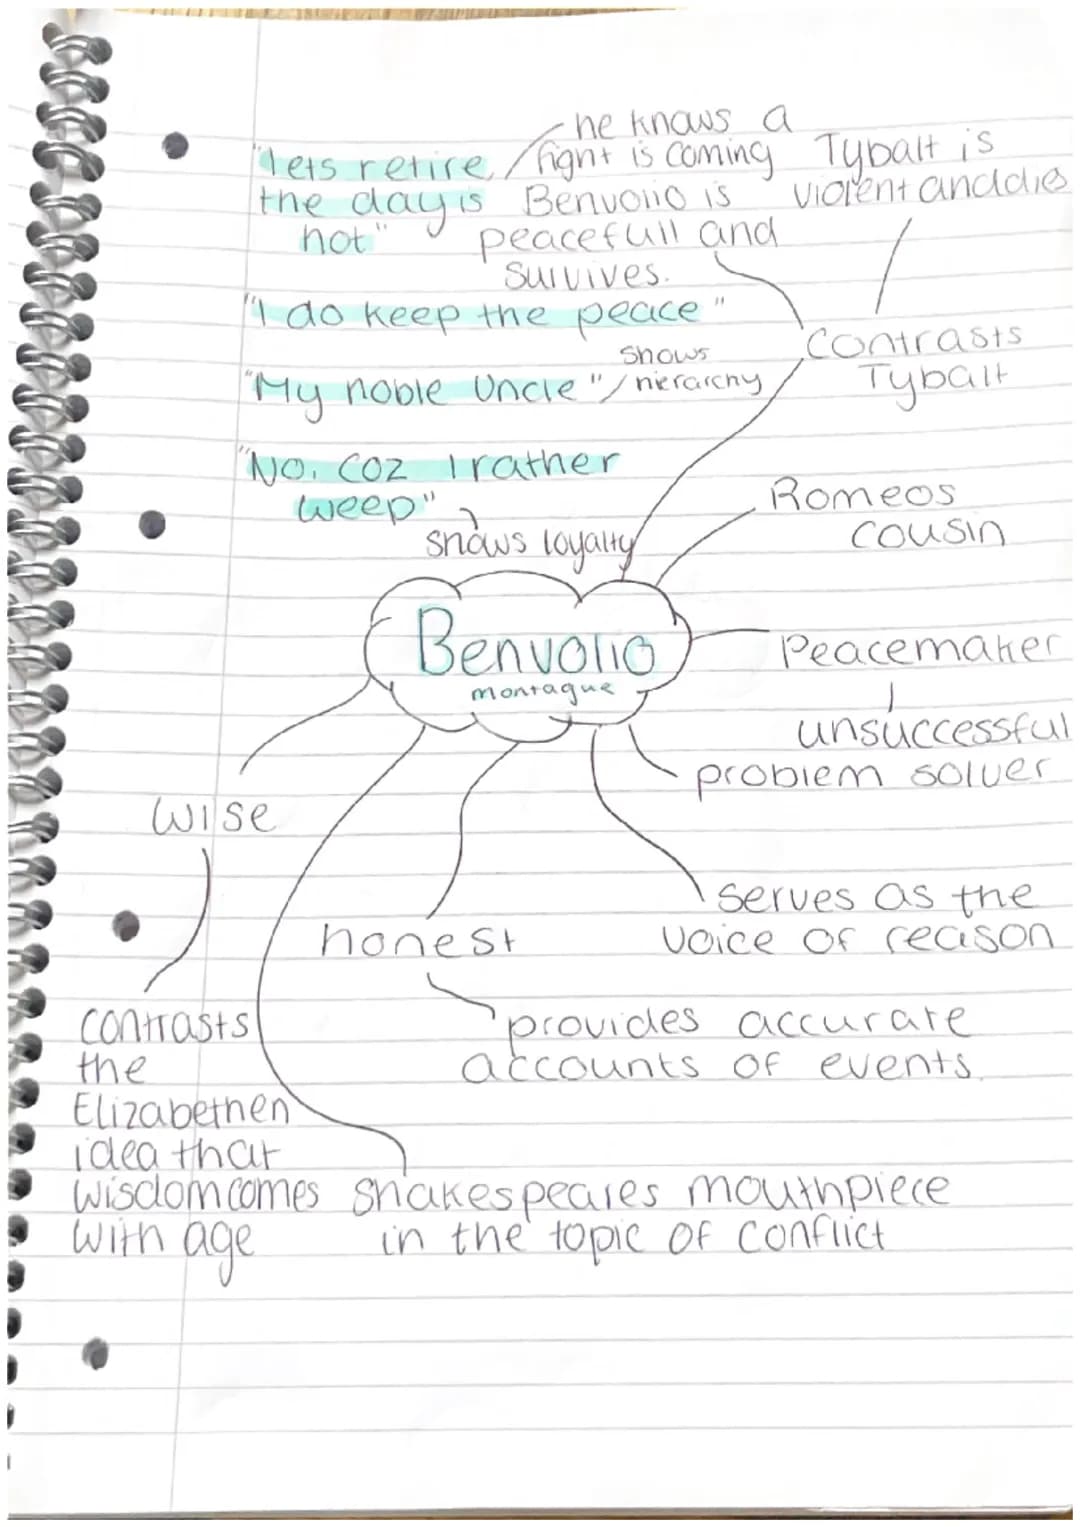 "lets retire,
the day is
hot"
he knows a
fight is coming
Benvolio is
peacefull and
survives.
Tybalt is
violent and dies
"I do keep the peace"
Contrasts
Tybalt
"My noble Uncle"
shows
hierarchy
"No, coz I rather
weep"
shows loyalty
Romeos
cousin
Benvolio
montague
Peacemaker
unsuccessful
problem solver
wise
serves as the
voice of reason
honest
provides accurate
accounts of events.
contrasts
the
Elizabethen
idea that
wisdom comes
with age
Shakespeares mouthpiece
in the topic of conflict